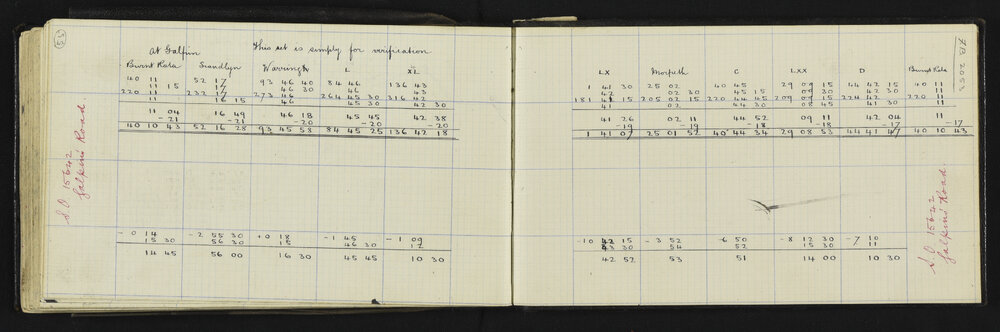 53
At Galpin This set is simply for verification
Burnt Kola Sandlyn Warrungh L XL
40 11 52 17 93 46 40 84 46 136 43
11 15 17 46 30 46 43
220 11 232 17 273 46 264 45 30 316 42
11 16 15 46 45 30 42 30
11 04 16 49 46 18 45 45 42 38
-21 -21 -20 -20 -20
40 10 43 52 16 28 93 45 58 84 45 25 136 42 18
S.O. 15642
Galpins Road
-0 14 -2 55 30 +0 18 -1 45 -1 09
15 30 56 30 15 46 30 12
14 45 56 00 16 30 45 45 10 30
FB 2053
LX Morpeth C LXX D Burnt Kola
1 41 30 25 02 40 45 29 09 15 44 42 15 40 11
42 02 30 45 15 09 30 42 30 11
181 41 15 205 02 15 220 44 45 209 09 15 224 42 220 11
41 02 44 30 08 45 41 30 11
41 26 02 11 44 52 09 11 42 04 11
-19 -19 -18 -18 -17 -17
1 41 07 25 01 52 40 44 34 29 08 53 44 41 47 40 10 43
-10 42 15 -3 52 -6 50 -8 12 30 -7 10
43 30 54 52 15 30 11
42 52 53 51 14 00 10 30
S.O. 15642
Galpins Road.